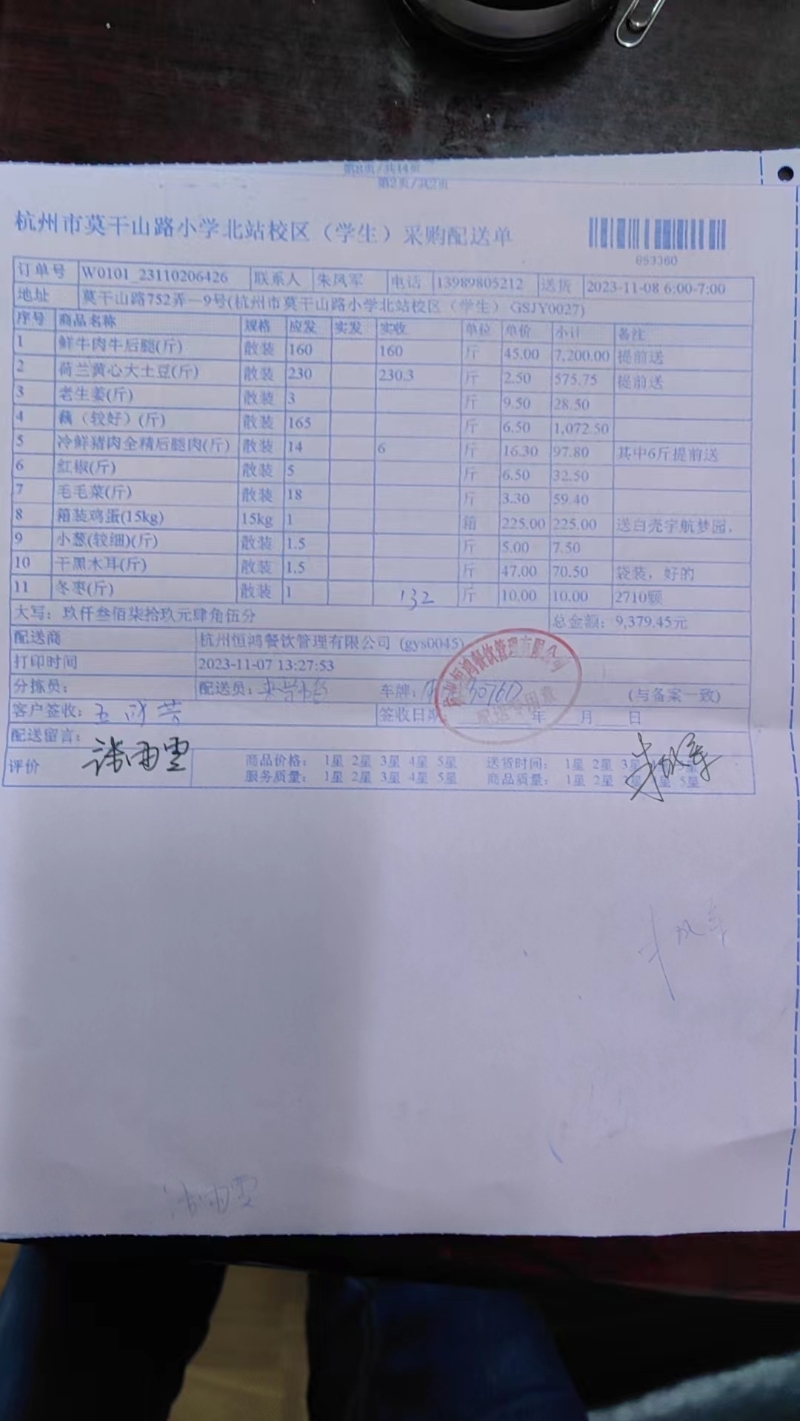 第8页/共14页
第2页/共2页
杭州市莫干山路小学北站校区（学生）采购配送单
053360
订单号 W0101_23110206426 联系人 朱凤军 电话 13989805212 送货 2023-11-08 6:00-7:00
地址 莫干山路752弄一9号(杭州市莫干山路小学北站校区（学生）GSJY0027)
序号 商品名称 规格 应发 实发 实收 单位 单价 小计 备注
1 鲜牛肉牛后腿(斤) 散装 160 160 斤 45.00 7,200.00 提前送
2 荷兰黄心大土豆(斤) 散装 230 230.3 斤 2.50 575.75 提前送
3 老生姜(斤) 散装 3 斤 9.50 28.50
4 藕（较好）(斤) 散装 165 斤 6.50 1,072.50
5 冷鲜猪肉全精后腿肉(斤) 散装 14 6 斤 16.30 97.80 其中6斤提前送
6 红椒(斤) 散装 5 斤 6.50 32.50
7 毛毛菜(斤) 散装 18 斤 3.30 59.40
8 箱装鸡蛋(15kg) 15kg 1 箱 225.00 225.00 送白壳宇航梦园，
9 小葱(较细)(斤) 散装 1.5 斤 5.00 7.50
10 干黑木耳(斤) 散装 1.5 斤 47.00 70.50 袋装，好的
11 冬枣(斤) 散装 1 132 斤 10.00 10.00 2710颗
大写：玖仟叁佰柒拾玖元肆角伍分 总金额：9,379.45元
配送商 杭州恒鸿餐饮管理有限公司 (gys0045)
打印时间 2023-11-07 13:27:53
分拣员： 配送员： 车牌： (与备案一致)
客户签收： 签收日期 年 月 日
配送留言：
评价 商品价格： 1星 2星 3星 4星 5星 送货时间： 1星 2星 3星
服务质量： 1星 2星 3星 4星 5星 商品质量： 1星 2星 5星
张雨雯
朱凤军